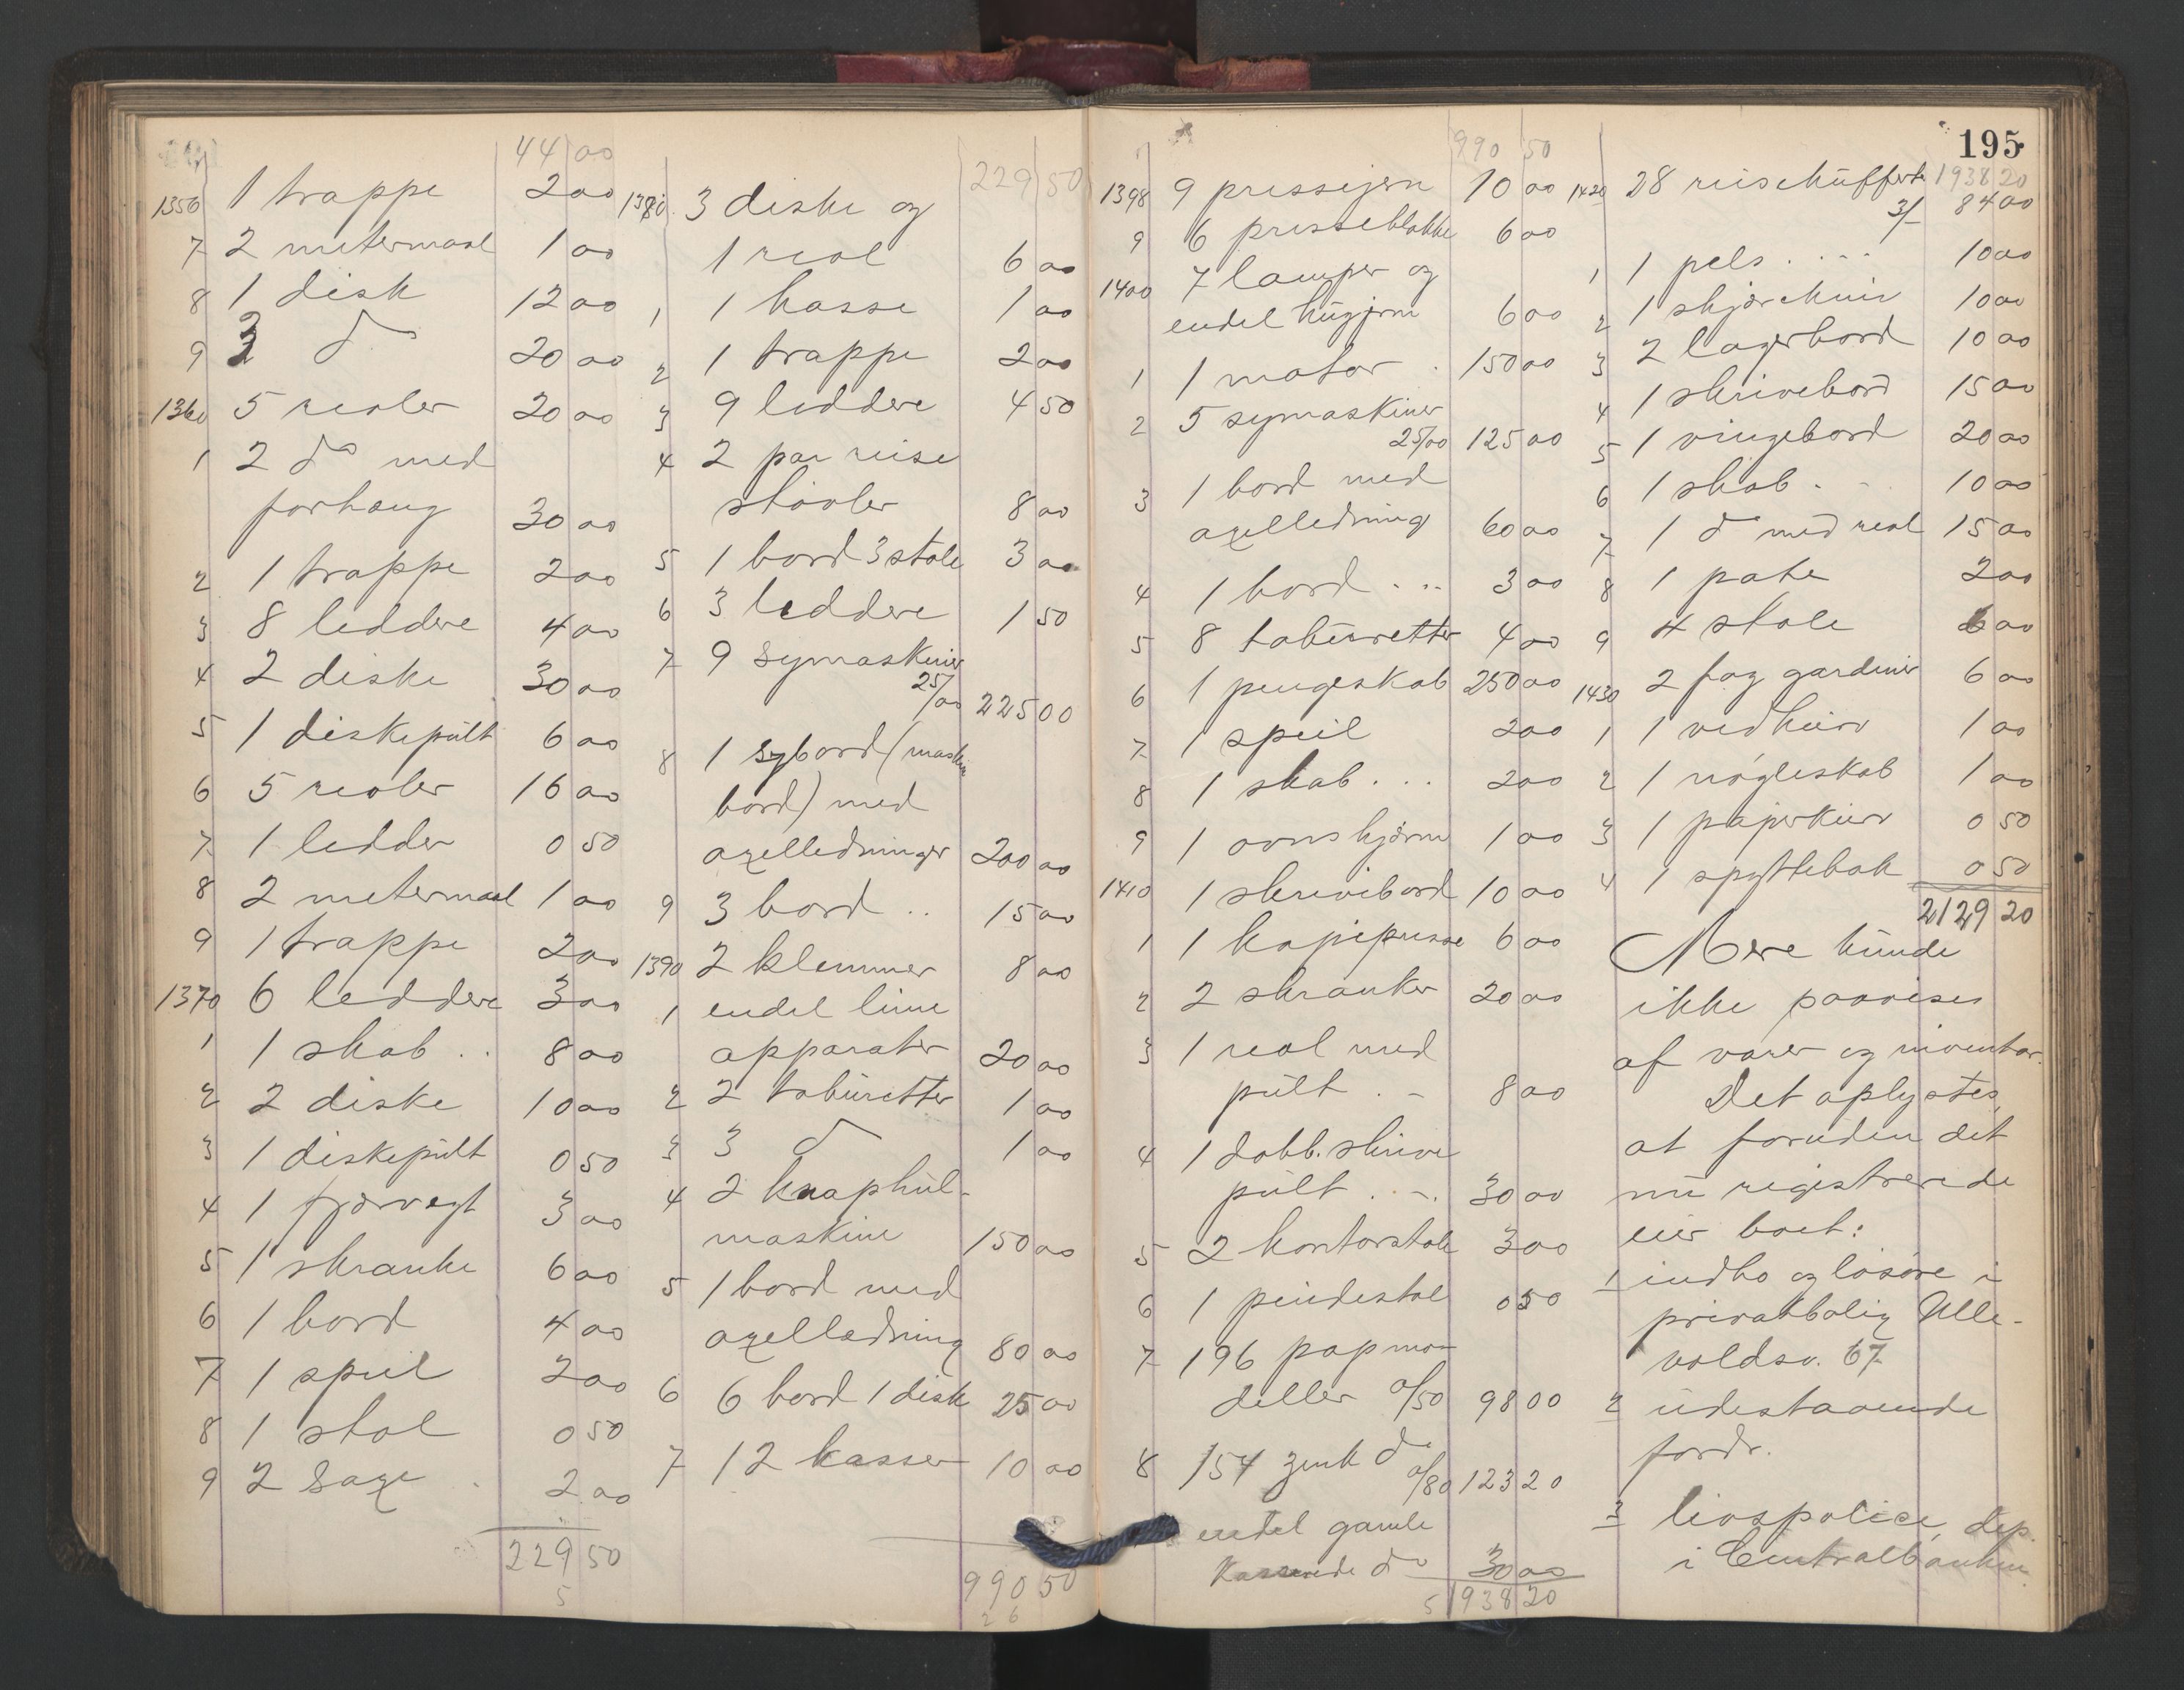 44 00
1356 1 trappe 2 00
7 2 metermaal 1 00
8 1 disk 12 00
9 3 do 20 00
1360 5 reoler 20 00
1 2 do med
forhæng 30 00
2 1 trappe 2 00
3 8 leddere 4 00
4 2 diske 30 00
5 1 diskepült 6 00
6 5 reoler 16 00
7 1 ledder 0 50
8 2 metermaal 1 00
9 1 trappe 2 00
1370 6 leddere 3 00
1 1 skab .. 8 00
2 2 diske 10 00
3 1 diskepült 0 50
4 1 fjærvegt 3 00
5 1 skranke 6 00
6 1 bord 4 00
7 1 speil 2 00
8 1 stol 0 50
9 2 saxe . 2 00
229 50
5
229 50
1380. 3 diske og
1 reol 6 00
1 1 kasse 1 00
2 1 trappe 2 00
3 9 leddere 4 50
4 2 par reise
støvler 8 00
5 1 bord 3 stole 3 00
6 3 leddere 1 50
7 9 symaskiner
25/00 225 00
8 1 sybord (maskin
bord) med
axelledninger 200 00
9 3 bord .. 15 00
1390 2 klemmer 8 00
1 endel lime
apparater 20 00
2 2 tabüretter 1 00
3 3 do 1 00
4 2 knaphül-
maskine 150 00
5 1 bord med
axelledning 80 00
6 6 bord 1 disk 25 00
7 12 kasser 10 00
990 50
26
990 50
1398 9 pressejern 10 00
9 6 presseblokke 6 00
1400 7 lamper og
endel hügjern 6 00
1 1 motor . 150 00
2 5 symaskiner
25/00 125 00
3 1 bord med
axelledning 60 00
4 1 bord ... 3 00
5 8 tabüretter 4 00
6 1 pengeskab 250 00
7 1 speil 2 00
8 1 skab ... 2 00
9 1 ovnskjærm 1 00
1410 1 skrivebord 10 00
1 1 kopiepresse 6 00
2 2 skranker 20 00
3 1 reol med
pült . - 8 00
4 1 dobb. skrive
pült . -. 30 00
5 2 kontorstole 3 00
6 1 pindestol 0 50
7 196 papmo-
deller 0/50 98 00
8 154 zink do
0/80 123 20
endel gamle
kasserede do 30 00
5 1938 20
195
1938 20
1420 28 reiseküfferte
3/- 84 00
1 1 pels .... 10 00
2 1 skjærekniv 10 00
3 2 lagerbord 10 00
4 1 skrivebord 15 00
5 1 vingebord 20 00
6 1 skab . - 10 00
7 1 do med reol 15 00
8 1 pate 2 00
9 4 stole 6 00
1430 2 fag gardiner 6 00
1 1 vedkürv 1 00
2 1 nøgleskab 1 00
3 1 papirkürv 0 50
4 1 spyttebak 0 50
2129 20
Mere künde
ikke paavises
af varer og inventar.
Det oplystes,
at foruden det
nü registrerede
eier boet:
1 indbo og løsøre i
privatbolig Ulle-
voldsv. 67
2 üdestaaende
fordr.
3 livspolice, dep.
i Centralbanken.